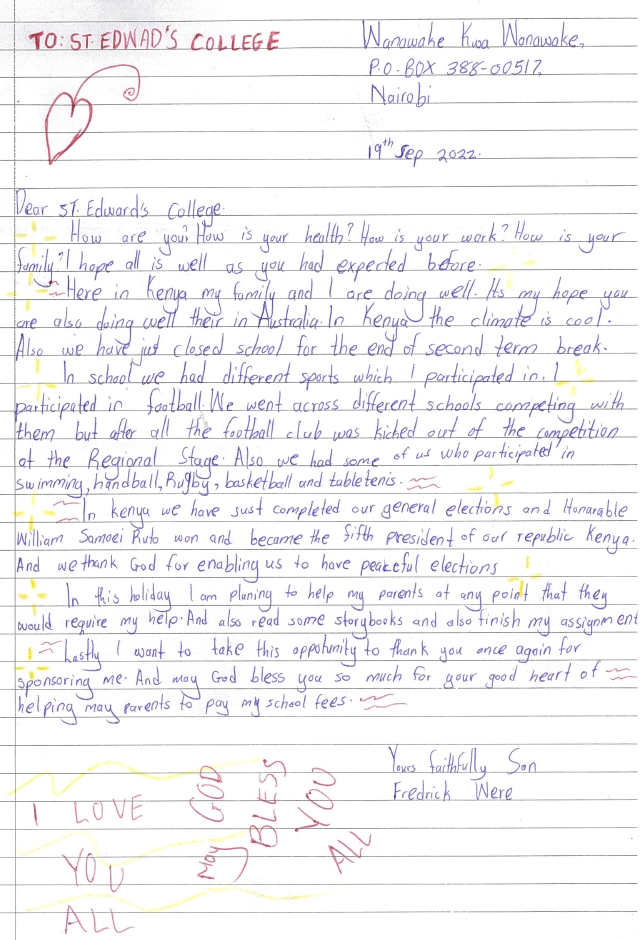 TO: ST. EDWAD'S COLLEGE
Wanawake Kwa Wanawake,
P.O. BOX 388-00517,
Nairobi
19th Sep 2022.
Dear ST. Edward's College.
How are you? How is your health? How is your work? How is your
family? I hope all is well as you had expected before.
Here in Kenya my family and I are doing well. Its my hope you
are also doing well their in Australia. In Kenya the climate is cool.
Also we have just closed school for the end of second term break.
In school we had different sports which I participated in. I
participated in football. We went across different schools competing with
them but after all the football club was kicked out of the competition
at the Regional Stage. Also we had some of us who participated in
swimming, handball, Rugby, basketball and tabletenis.
In kenya we have just completed our general elections and Honarable
William Samoei Ruto won and became the fifth president of our republic Kenya.
And we thank God for enabling us to have peaceful elections
In this holiday I am planing to help my parents at any point that they
would require my help. And also read some storybooks and also finish my assignment
Lastly I want to take this oppotunity to thank you once again for
sponsoring me. And may God bless you so much for your good heart of
helping may parents to pay my school fees.
Yours faithfully Son
Fredrick Were
I LOVE
YOU
ALL
May GOD
BLESS
YOU
ALL